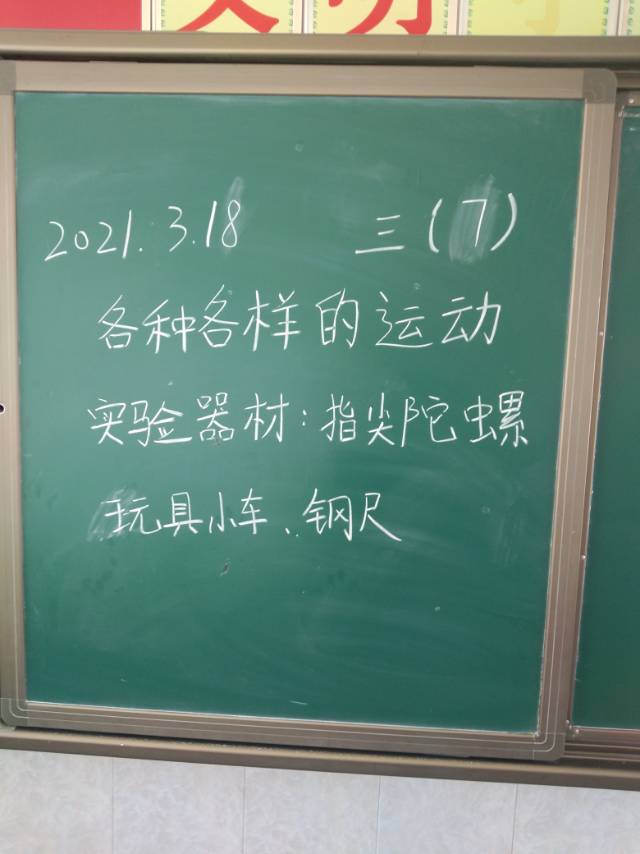 2021.3.18 三(7)
各种各样的运动
实验器材:指尖陀螺
玩具小车、钢尺